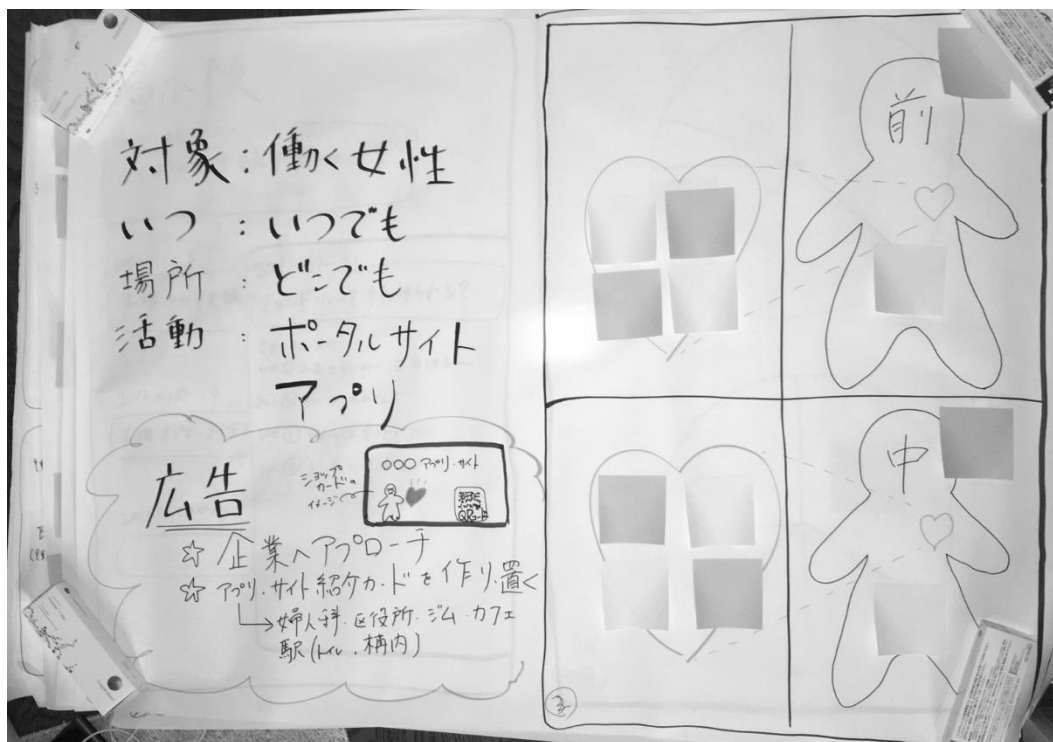 対象：働く女性
いつ：いつでも
場所：どこでも
活動：ポータルサイト
アプリ
広告
ショップカードのイメージ
○○○アプリ・サイト
QRコード
☆ 企業へアプローチ
☆ アプリ・サイト紹介カードを作り、置く
→婦人科・区役所・ジム・カフェ
駅(トイレ、構内)
前
中